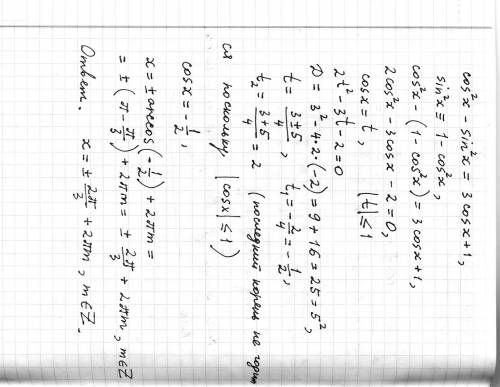 cos²x − sin²x = 3cosx + 1,
sin²x = 1 − cos²x,
cos²x − (1 − cos²x) = 3cosx + 1,
2cos²x − 3cosx − 2 = 0,
cosx = t, |t| ≤ 1
2t² − 3t − 2 = 0
D = 3² − 4·2·(−2) = 9 + 16 = 25 = 5²,
t = (3 ± 5)/4, t₁ = −2/4 = −1/2,
t₂ = (3+5)/4 = 2 (последний корень не годит
ся поскольку |cosx| ≤ 1)
cosx = −1/2,
x = ± arccos(−1/2) + 2πm =
= ± (π − π/3) + 2πm = ± 2π/3 + 2πm, m ∈ Z
Ответ. x = ± 2π/3 + 2πm, m ∈ Z.